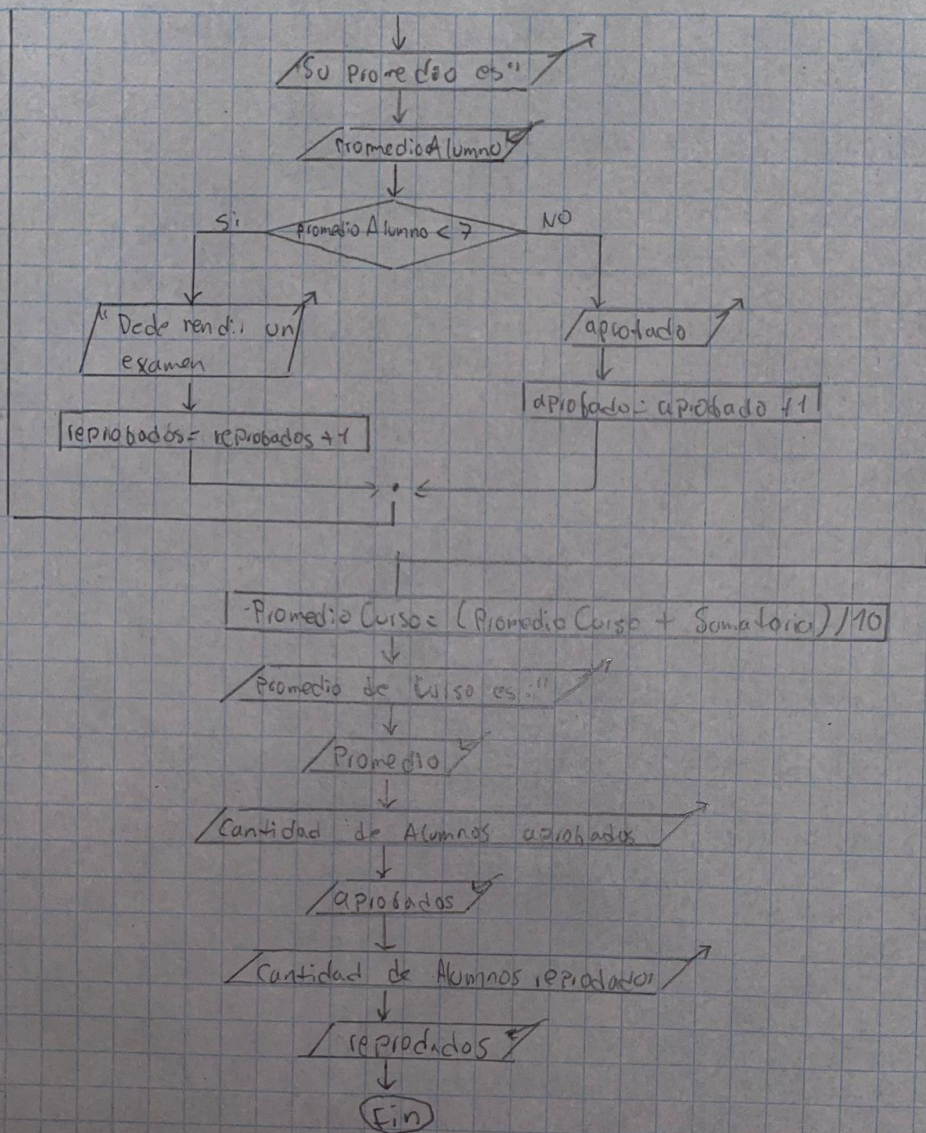 "Su promedio es"
promedioAlumno
Si
promedio Alumno < 7
NO
"Dede rendir un
examen
aprobado
reprobados = reprobados + 1
aprobado = aprobado + 1
Promedio Curso = (Promedio Curso + Sumatoria) / 10
Promedio de Curso es:"
Promedio
Cantidad de Alumnos aprobados
aprobados
Cantidad de Alumnos reprodados
reprodados
Fin